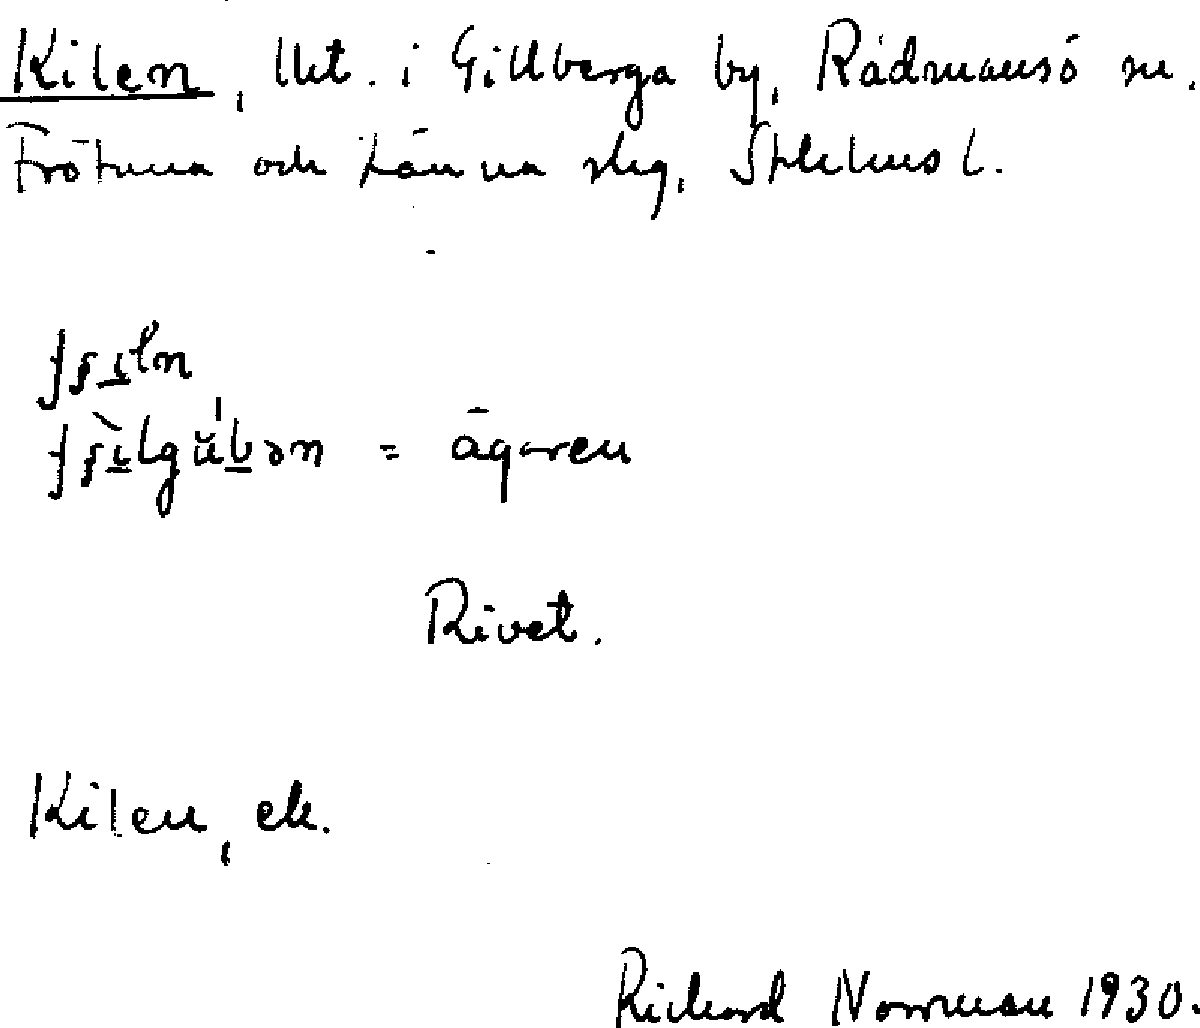 Kilen, lht. i Gillberga by, Rådmansö sn.
Frötuna och Länna skg, Sthlms l.
= ägaren
Rivet.
Kilen, ek.
Richard Norrman 1930.